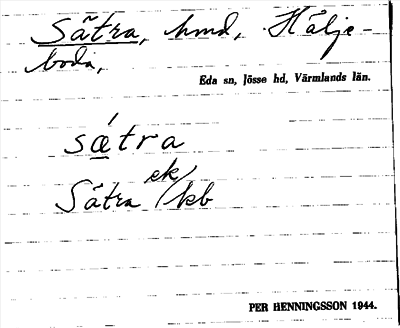 Sätra, hmd, Hålje-
boda,
Eda sn, Jösse hd, Värmlands län.
sǽtra
Sätra ek/kb
PER HENNINGSSON 1944.